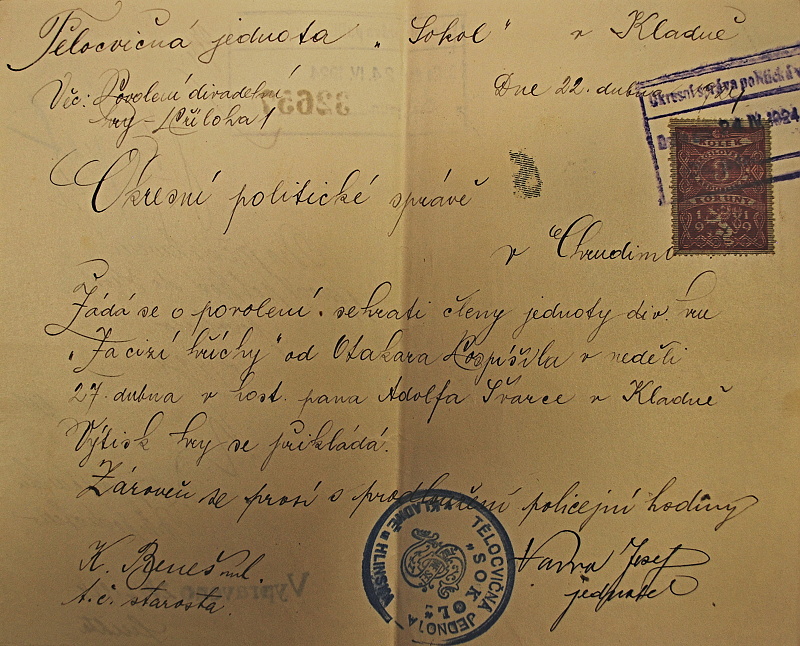 Tělocvičná jednota „Sokol“ v Kladně
Věc: Povolení divadelní
hry - Příloha 1
Dne 22. dubna 1924
Okresní správa politická v
24 IV. 1924
32657
KOLEK
KORUNY
1919
Okresní politické správě
v Chrudimi
Žádá se o povolení sehrati členy jednoty div. hru
„Za cizí hříchy“ od Otakara Pospíšila v neděli
27. dubna v host. pana Adolfa Švarce v Kladně
Výtisk hry se přikládá.
Zároveň se prosí o prodloužení policejní hodiny
K. Beneš ml.
t. č. starosta.
Vavra Josef
jednatel
TĚLOCVIČNÁ JEDNOTA „SOKOL“
V KLADNĚ u HLINSKA